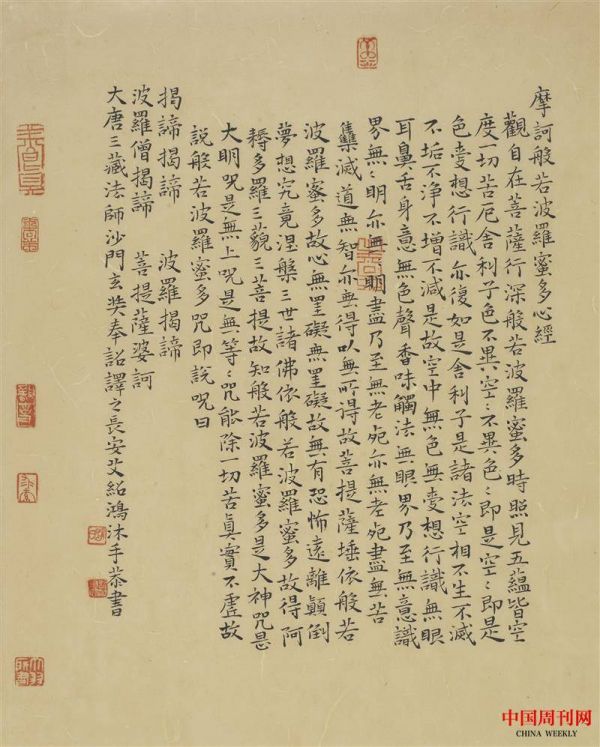 摩訶般若波羅蜜多心經
觀自在菩薩行深般若波羅蜜多時照見五蘊皆空
度一切苦厄舍利子色不異空〻不異色〻即是空〻即是
色受想行識亦復如是舍利子是諸法空相不生不滅
不垢不淨不增不減是故空中無色無受想行識無眼
耳鼻舌身意無色聲香味觸法無眼界乃至無意識
界無〻明亦無明盡乃至無老死亦無老死盡無苦
集滅道無智亦無得以無所得故菩提薩埵依般若
波羅蜜多故心無罣礙無罣礙故無有恐怖遠離顛倒
夢想究竟涅槃三世諸佛依般若波羅蜜多故得阿
耨多羅三藐三菩提故知般若波羅蜜多是大神咒是
大明咒是無上咒是無等〻咒能除一切苦真實不虛故
說般若波羅蜜多咒即說咒曰
揭諦揭諦　波羅揭諦
波羅僧揭諦　菩提薩婆訶
大唐三藏法師沙門玄奘奉詔譯之長安艾紹鴻沐手恭書
中国周刊网
CHINA WEEKLY